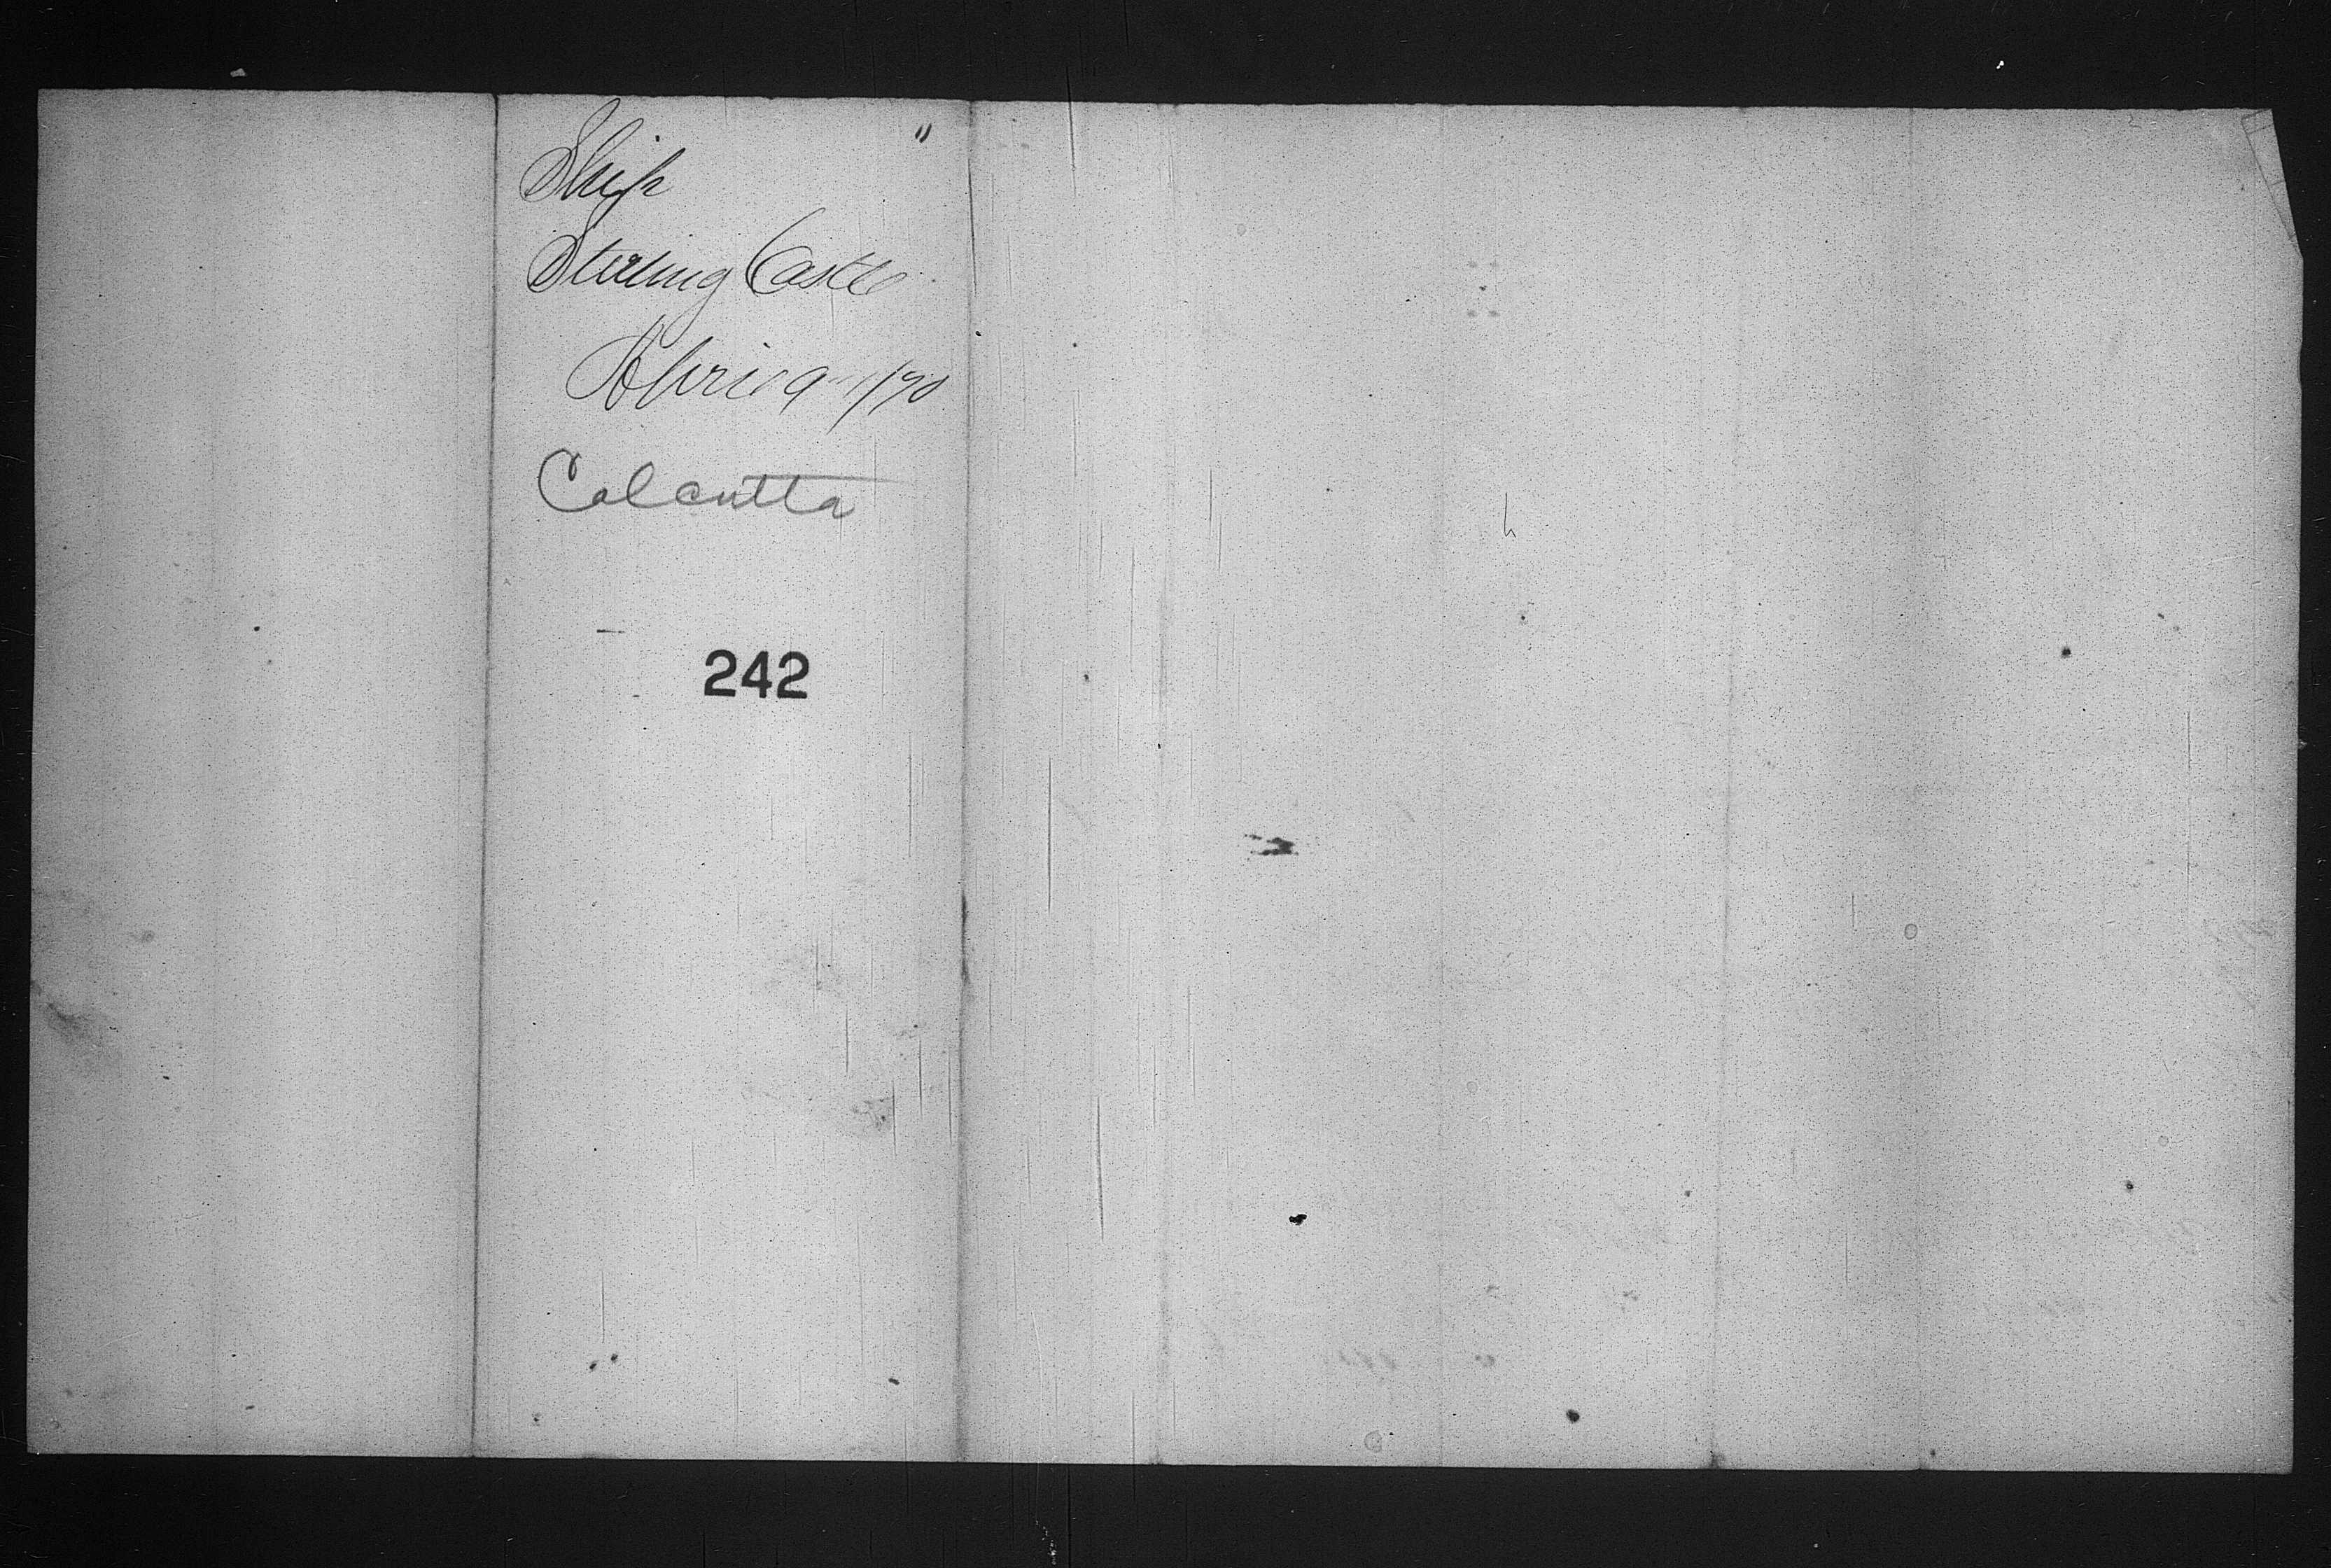 Ship "
Stirling Castle
April 9 1/70
Calcutta
242